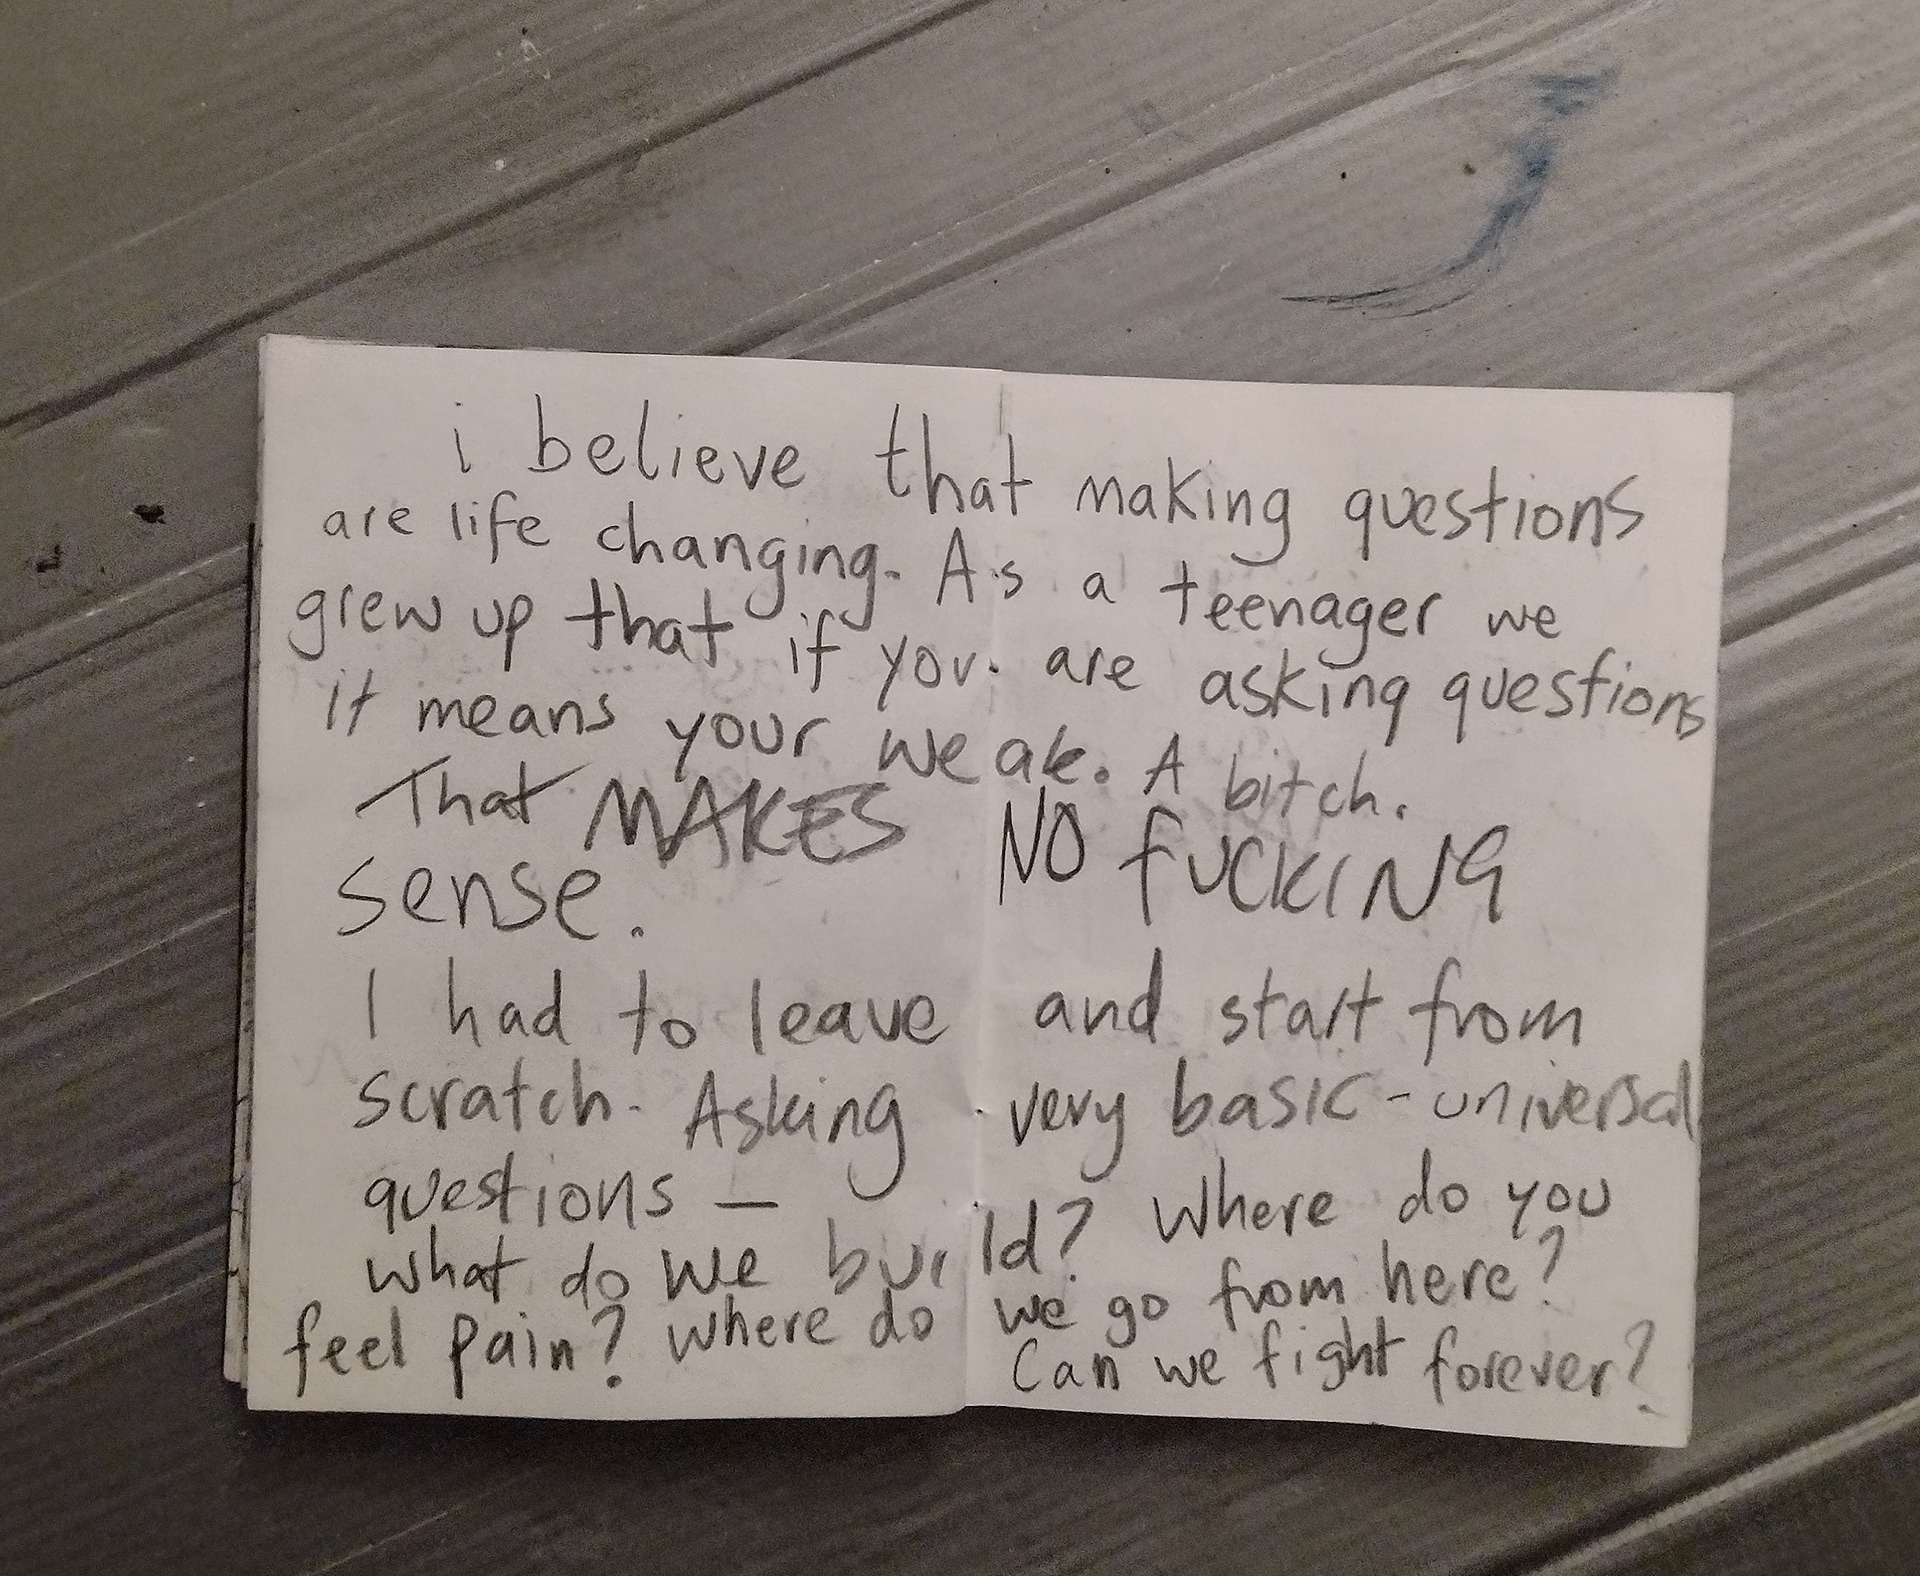 i believe that making questions
are life changing. As a teenager we
grew up that if you are asking questions
it means your weak. A bitch.
That MAKES NO fUCKING
sense.
I had to leave and start from
scratch. Asking very basic - universal
questions —
what do we build? Where do you
feel pain? Where do we go from here?
Can we fight forever?